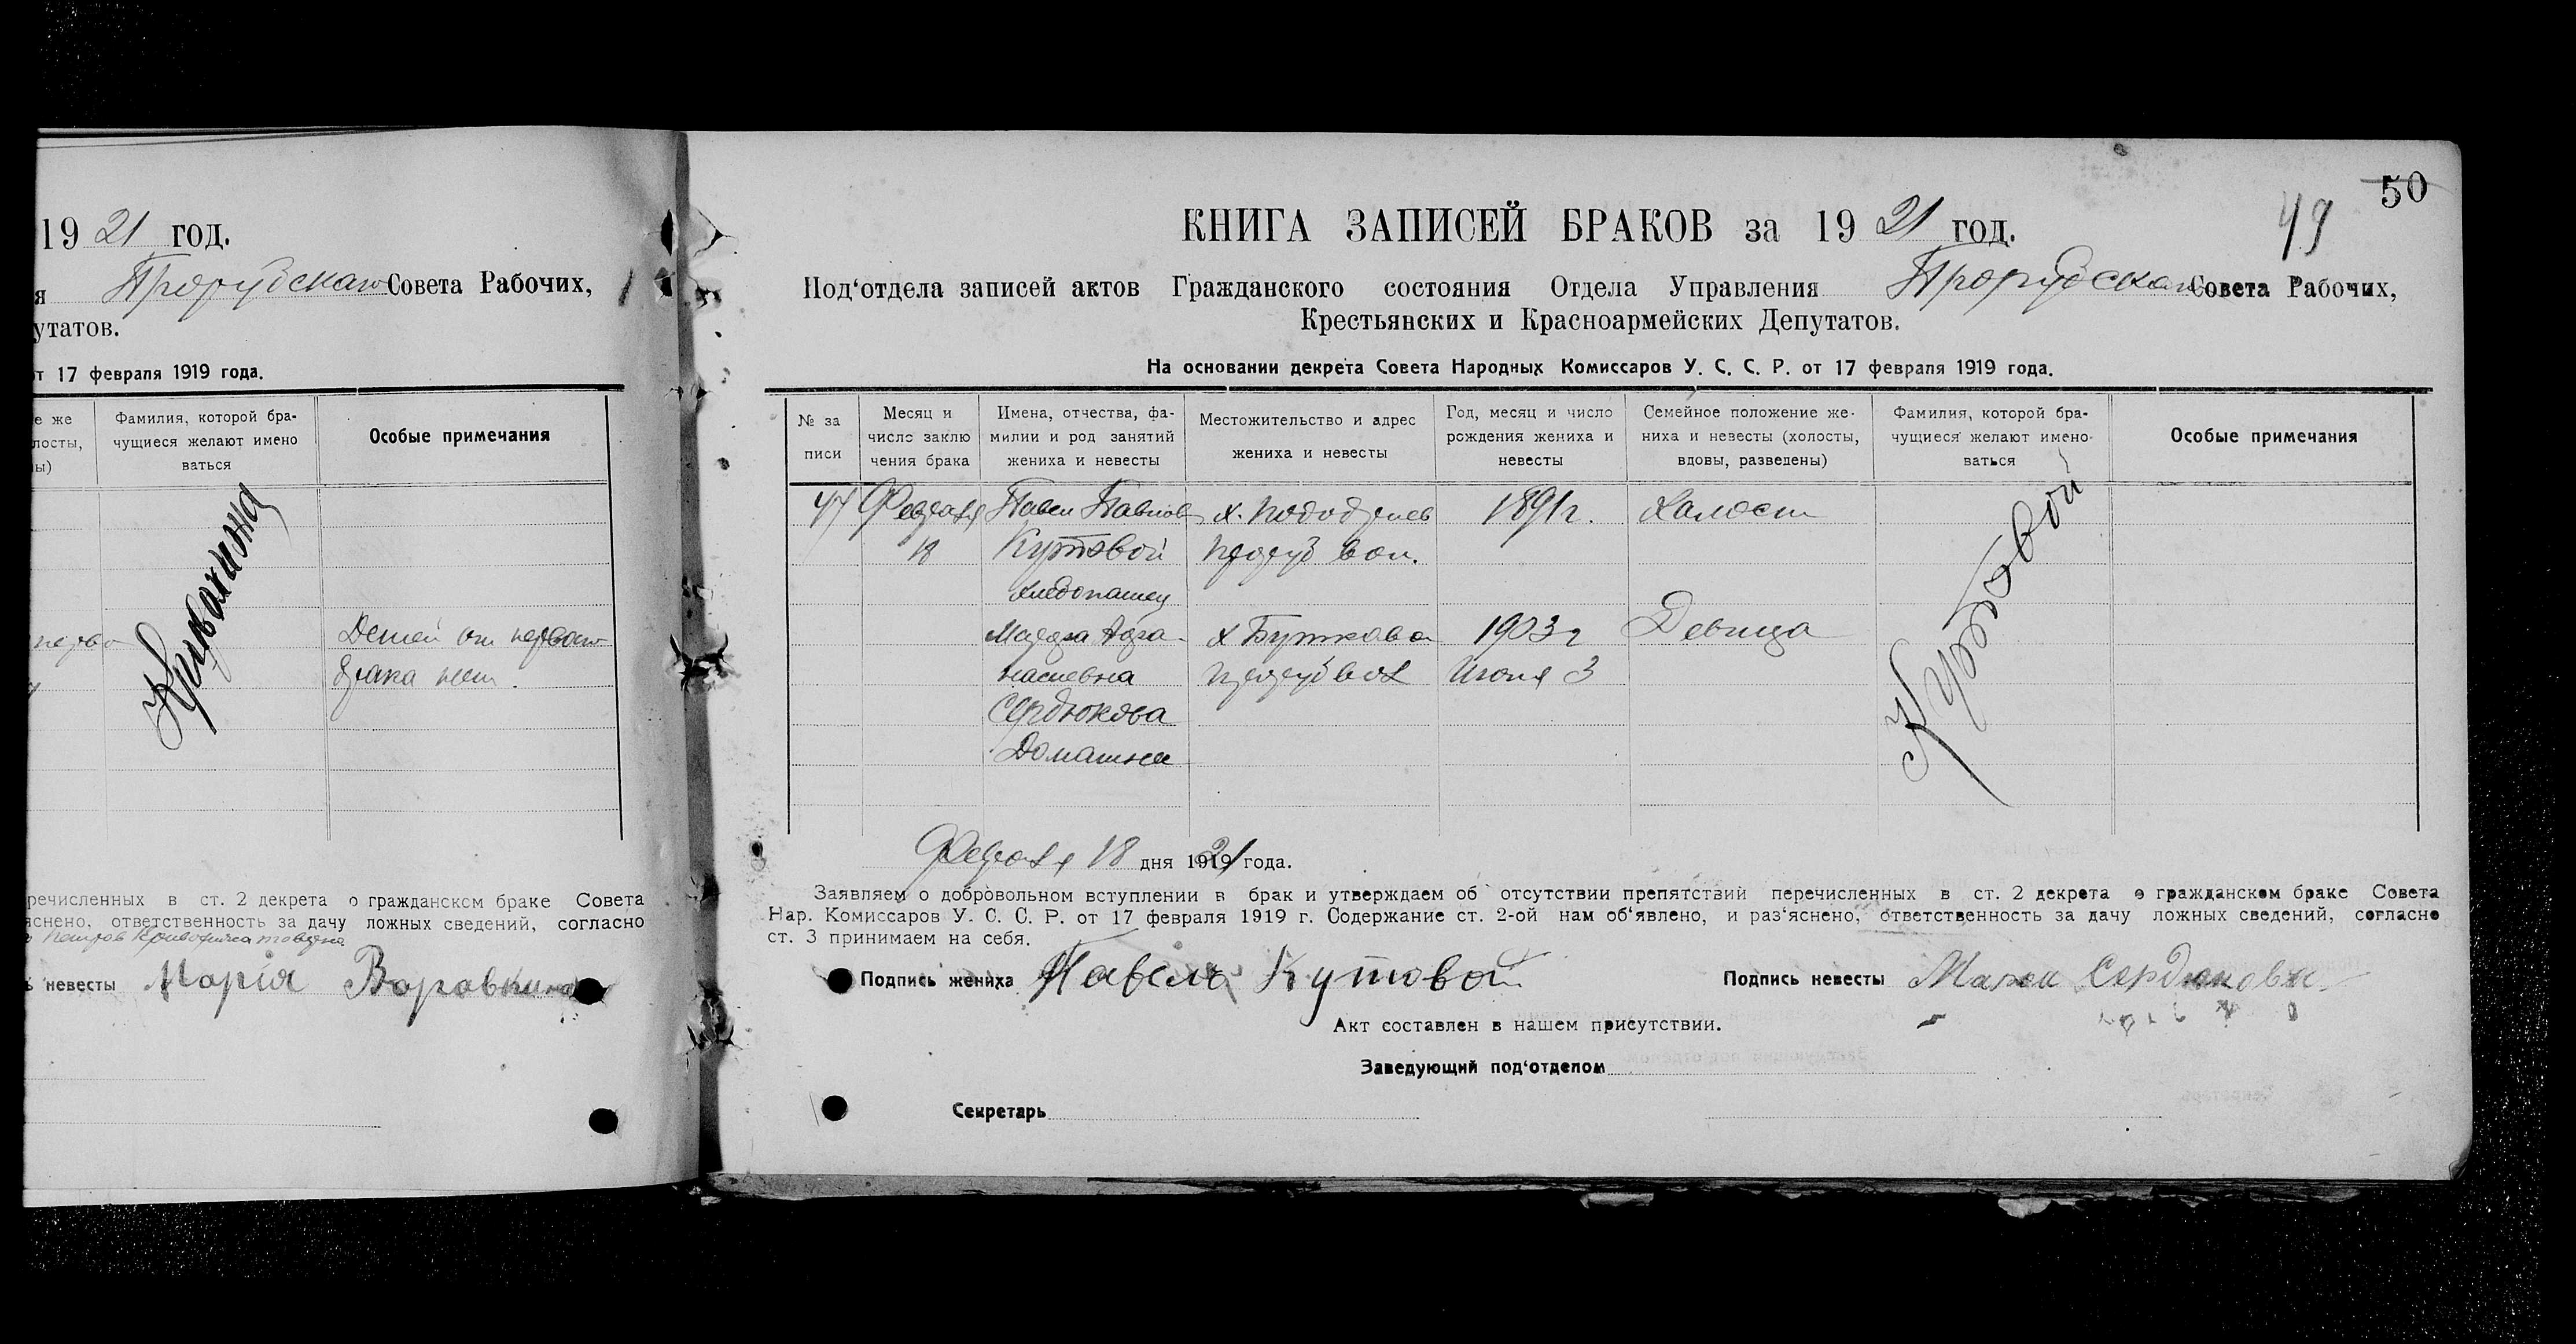 19 21 год.
Совета Рабочих,
я
утатов.
от 17 февраля 1919 года.
е же
лосты,
ы)
Фамилия, которой бра-
чущиеся желают имено
ваться
Особые примечания
Детей от первого
брака нет.
речисленных в ст. 2 декрета о гражданском браке Совета
яснено, ответственность за дачу ложных сведений, согласно
невесты Марія
50
49
КНИГА ЗАПИСЕЙ БРАКОВ за 19 21 год.
Под‘отдела записей актов Гражданского состояния Отдела Управления Совета Рабочих,
Крестьянских и Красноармейских Депутатов.
На основании декрета Совета Народных Комиссаров У. С. С. Р. от 17 февраля 1919 года.
№ за
писи
Месяц и
число заклю
чения брака
Имена, отчества, фа-
милии и род занятий
жениха и невесты
Местожительство и адрес
жениха и невесты
Год, месяц и число
рождения жениха и
невесты
Семейное положение же-
ниха и невесты (холосты,
вдовы, разведены)
Фамилия, которой бра-
чущиеся желают имено-
ваться
Особые примечания
Февраля Павел Павлов х. 1891г. Халост
18
хлебопашец
х 1903г Девица
насиевна Июня 3
Сердюкова
Домашнее
Февраля 18 дня 1921 года.
Заявляем о добровольном вступлении в брак и утверждаем об отсутствии препятствий перечисленных в ст. 2 декрета о гражданском браке Совета
Нар. Комиссаров У. С. С. Р. от 17 февраля 1919 г. Содержание ст. 2-ой нам об‘явлено, и раз‘яснено, ответственность за дачу ложных сведений, согласно
ст. 3 принимаем на себя.
Подпись жениха Кутовой
Подпись невесты
Акт составлен в нашем присутствии.
Заведующий под‘отделом
Секретарь